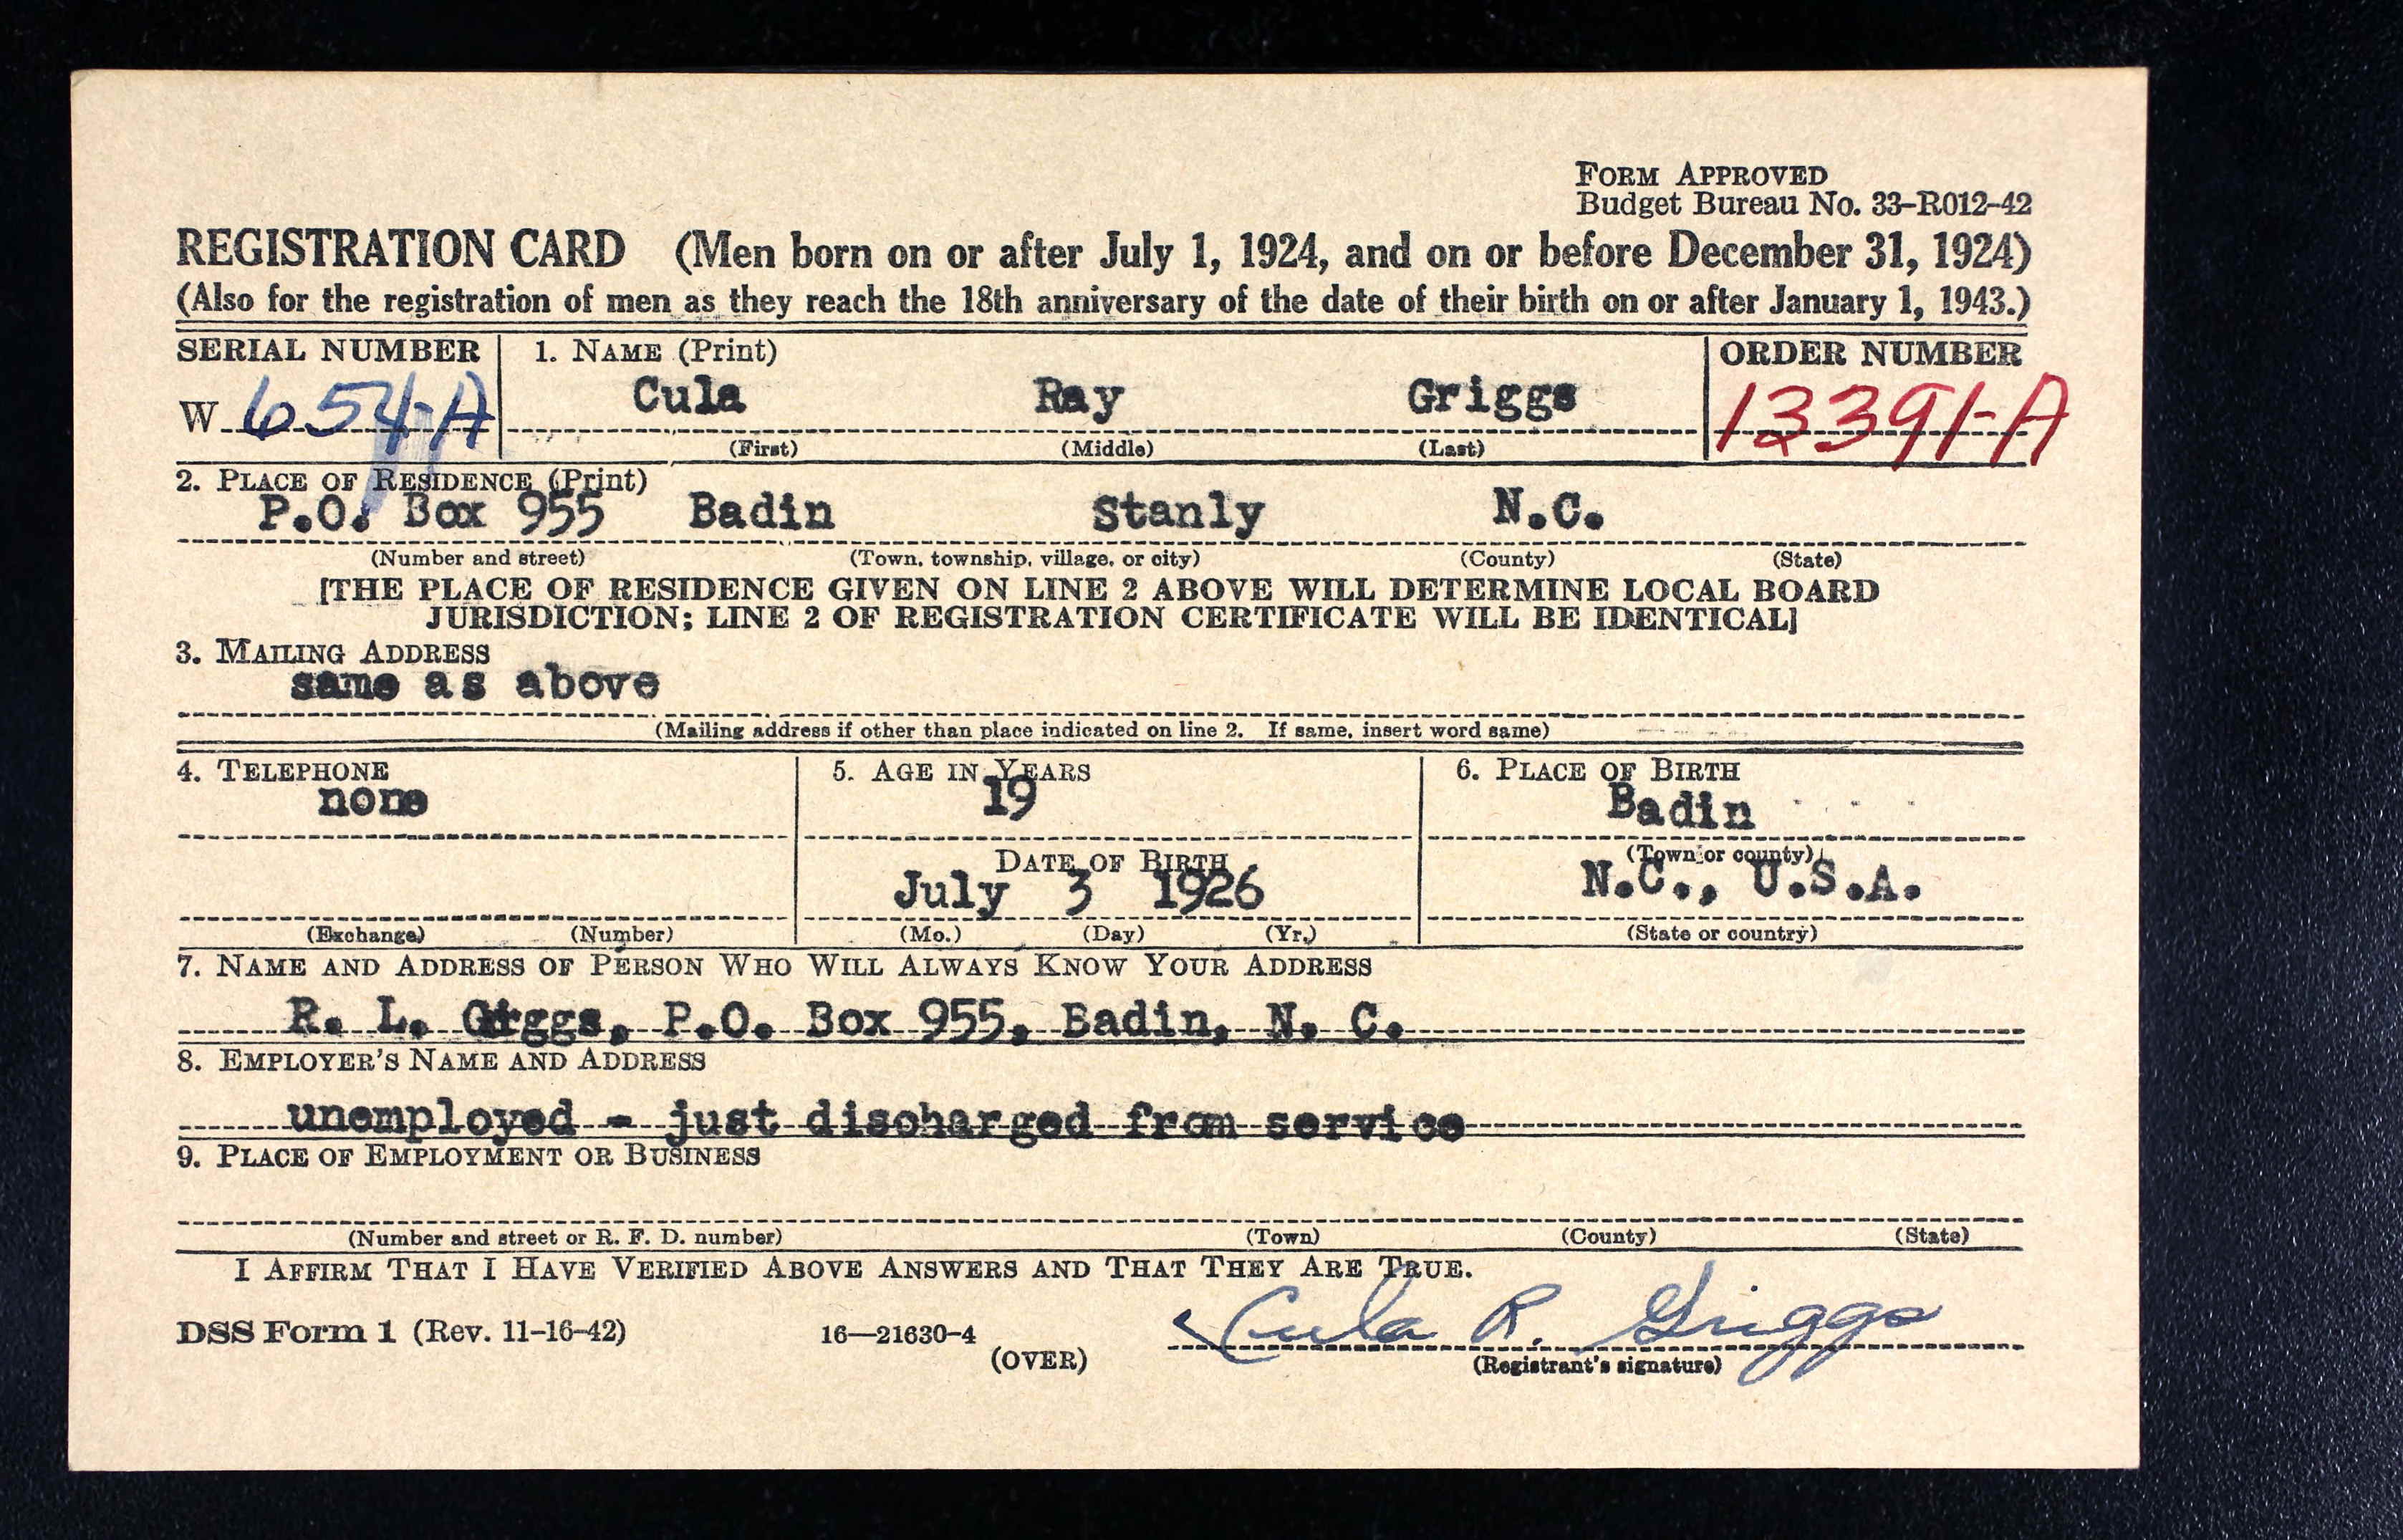 FORM APPROVED
Budget Bureau No. 33-R012-42
REGISTRATION CARD (Men born on or after July 1, 1924, and on or before December 31, 1924)
(Also for the registration of men as they reach the 18th anniversary of the date of their birth on or after January 1, 1943.)
SERIAL NUMBER 1. NAME (Print) ORDER NUMBER
W 654-A Cula Ray Griggs 13391-A
(First) (Middle) (Last)
2. PLACE OF RESIDENCE (Print)
P.O. Box 955 Badin Stanly N.C.
(Number and street) (Town, township, village, or city) (County) (State)
[THE PLACE OF RESIDENCE GIVEN ON LINE 2 ABOVE WILL DETERMINE LOCAL BOARD
JURISDICTION; LINE 2 OF REGISTRATION CERTIFICATE WILL BE IDENTICAL]
3. MAILING ADDRESS
same as above
(Mailing address if other than place indicated on line 2. If same, insert word same)
4. TELEPHONE 5. AGE IN YEARS 6. PLACE OF BIRTH
none 19 Badin
DATE OF BIRTH (Town or county)
July 3 1926 N.C., U.S.A.
(Exchange) (Number) (Mo.) (Day) (Yr.) (State or country)
7. NAME AND ADDRESS OF PERSON WHO WILL ALWAYS KNOW YOUR ADDRESS
R. L. Griggs, P.O. Box 955, Badin, N. C.
8. EMPLOYER'S NAME AND ADDRESS
unemployed - just discharged from service
9. PLACE OF EMPLOYMENT OR BUSINESS
(Number and street or R. F. D. number) (Town) (County) (State)
I AFFIRM THAT I HAVE VERIFIED ABOVE ANSWERS AND THAT THEY ARE TRUE.
DSS Form 1 (Rev. 11-16-42) 16—21630-4 Cula R. Griggs
(OVER) (Registrant's signature)